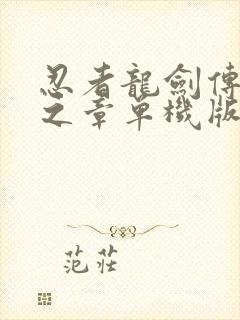 忍者龍劍傳
之章單機版
范莊